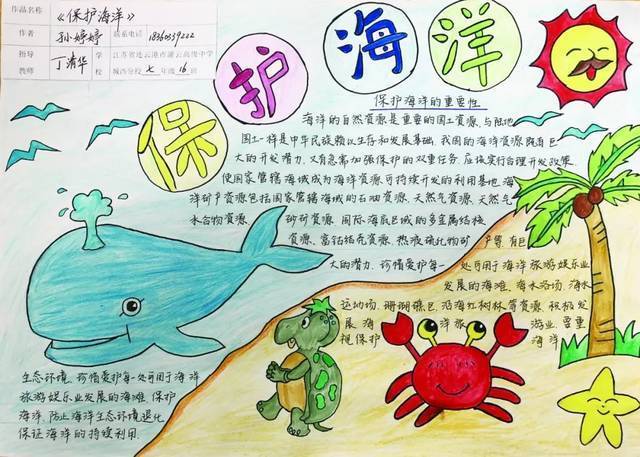 作品名称 《保护海洋》
作者 孙婷婷 联系电话
指导教师 丁清华 学校 江苏省连云港市灌云高级中学
城西分校 七 年级 16 班
保护海洋
保护海洋的重要性
海洋的自然资源是重要的国土资源,与陆地
国土一样是中华民族赖以生存和发展基础,我国的海洋资源既有巨
大的开发潜力,又有急需加强保护的双重任务,应该实行合理开发政策,
使国家管辖海域成为海洋资源可持续开发的利用基地,海
洋矿产资源包括国家管辖海域的石油资源,天然气资源,天然气
水合物资源, 砂矿资源,国际海底区域的多金属结核
资源,富钴结壳资源,热液硫化物矿 产等,有巨
大的潜力,珍惜爱护每一 处可用于海洋旅游娱乐业
发展的海滩,海水浴场,海水
运动场,珊瑚礁巴,沿海红树林等资源,积极发
展海 洋旅 游业,要重
视保护 海洋
生态环境,珍惜爱护每一处可用于海洋
旅游娱乐业发展的海滩,保护
海洋,防止海洋生态环境退化
保证海洋的持续利用.